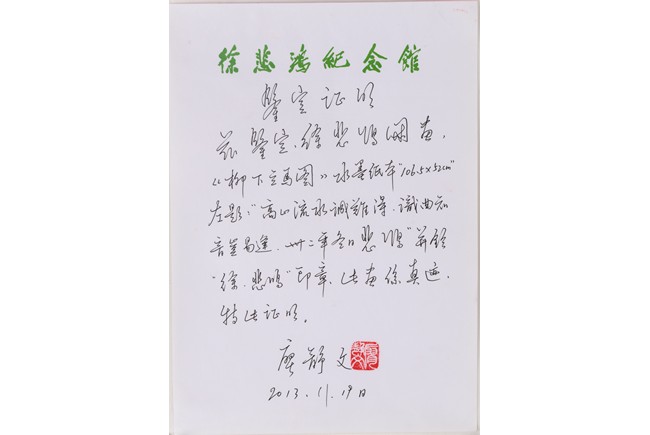 徐悲鴻紀念館
鑒定证明
兹鑒定,徐悲鸿国画,
《柳下立馬圖》水墨纸本"106.5×52cm"
左题:"高山流水誠難得,識曲知
音豈易逢,卅二年冬日悲鸿"并钤
"徐、悲鸿"印章,此画係真迹,
特此证明。
廖静文
2013.11.19日